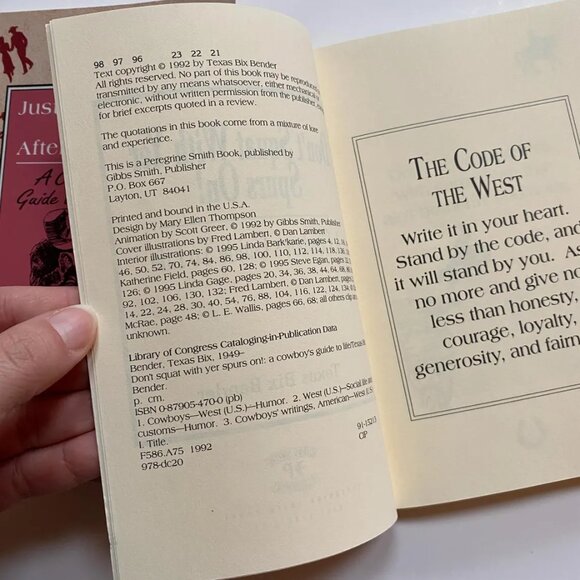 Just
After
A C
Guide
98 97 96 23 22 21
Text copyright © 1992 by Texas Bix Bender
All rights reserved. No part of this book may be reproduced,
transmitted by any means whatsoever, either mechanical or
electronic, without written permission from the publisher,
for brief excerpts quoted in a review.
The quotations in this book come from a mixture of lore
and experience.
This is a Peregrine Smith Book, published by
Gibbs Smith, Publisher
P.O. Box 667
Layton, UT 84041
Printed and bound in the U.S.A.
Design by Mary Ellen Thompson
Animation by Scott Greer, © 1992 by Gibbs Smith, Publisher
Cover illustrations by Fred Lambert, © Dan Lambert
Interior illustrations: © 1995 Linda Bark'karie, pages 4, 12,
46, 50, 52, 70, 74, 84, 86, 98, 100, 110, 112, 114, 118,
Katherine Field, pages 60, 128; © 1995 Steve Egan, pages
© 1995 Linda Gage, pages 20, 34, 36, 38, 44, 64, 66,
92, 102, 106, 130, 132; Fred Lambert, © Dan Lambert
14, 22, 24, 28, 30, 40, 54, 76, 88, 104, 116, 122, 124,
McRae, page 48; © L. E. Wallis, pages 66, 68; all others
unknown.
Library of Congress Cataloging-in-Publication Data
Bender, Texas Bix, 1949–
Don't squat with yer spurs on!: a cowboy's guide to life/Texas
Bender.
p. cm.
ISBN 0-87905-470-0 (pb)
1. Cowboys—West (U.S.)—Humor. 2. West (U.S.)—Social life and
customs—Humor. 3. Cowboys' writings, American—West
I. Title.
F586.A75 1992
978-dc20
91-13213
CIP
THE CODE OF
THE WEST
Write it in your heart.
Stand by the code, and
it will stand by you. As
no more and give no
less than honesty,
courage, loyalty,
generosity, and fairn